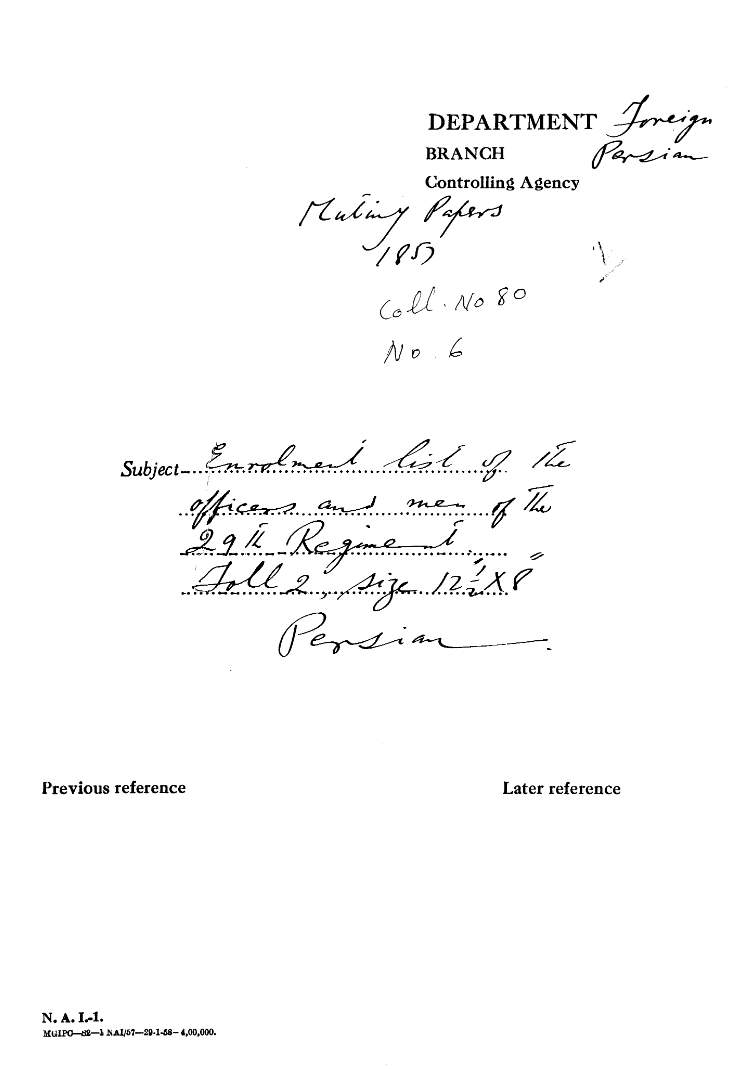 DEPARTMENT Foreign
BRANCH Persian
Controlling Agency
Mutiny Papers
1857
Coll. No 80
No. 6
Subject—Enrolment list of the
officers and men of the
29th Regiment.
Foll 2, size 12½" X 8"
Persian
Previous reference
Later reference
N. A. I.-1.
MGIPC—S2—1 NAI/57—29-1-58—4,00,000.